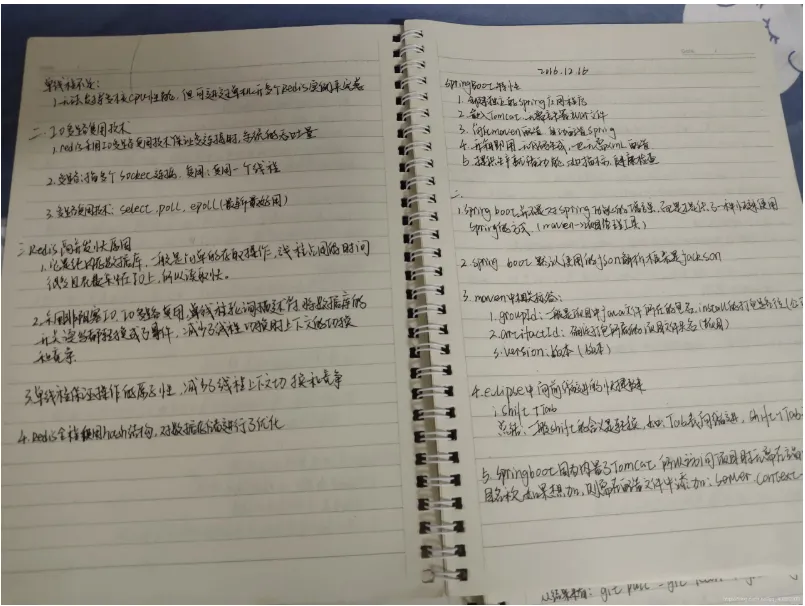 单线程不足:
1.无法发挥多核CPU性能,但可通过单机开多个Redis实例来完善
二.IO多路复用技术
1.redis采用IO多路复用技术保证多连接时,系统的高吞吐量
2.多路:指多个socket连接,复用:复用一个线程
3.多路复用技术:select,poll,epoll(最新最好用)
三.Redis高并发快原因
1.它是纯内存数据库,一般是简单的存取操作,线程占用的时间
很多且花费集中在IO上,所以读取快。
2.采用非阻塞IO,IO多路复用,单线程轮询描述符,将数据库的
开关读写都转换成了事件,减少了线程切换时上下文的切换
和竞争
3.单线程保证操作的原子性,减少线程上下文切换和竞争
4.Redis全程使用hash结构,对数据存储进行了优化
2016.12.16
SpringBoot特性
1.创建独立的Spring应用程序
2.嵌入Tomcat,无需部署WAR文件
3.简化maven配置,自动配置Spring
4.开箱即用,无代码生成,也无需XML配置
5.提供生产就绪功能,如指标,健康检查
二.
1.spring boot
Spring的方式(maven->项目管理工具)
2.spring boot默认使用的json解析框架是jackson
3.maven中相关标签:
1.groupId:一般是项目中java文件所在的包名,install
2.artifactId:
3.version:版本(版本)
4.eclipse中向前缩进的快捷键
:shift+Tab
总结:一般shift的含义是转换,如:Tab表向后缩进,shift+Tab
5.springboot因为内置了Tomcat,所以访问项目时无需
目名称,如果想加,则需在配置文件中添加:server.context-
git pull git